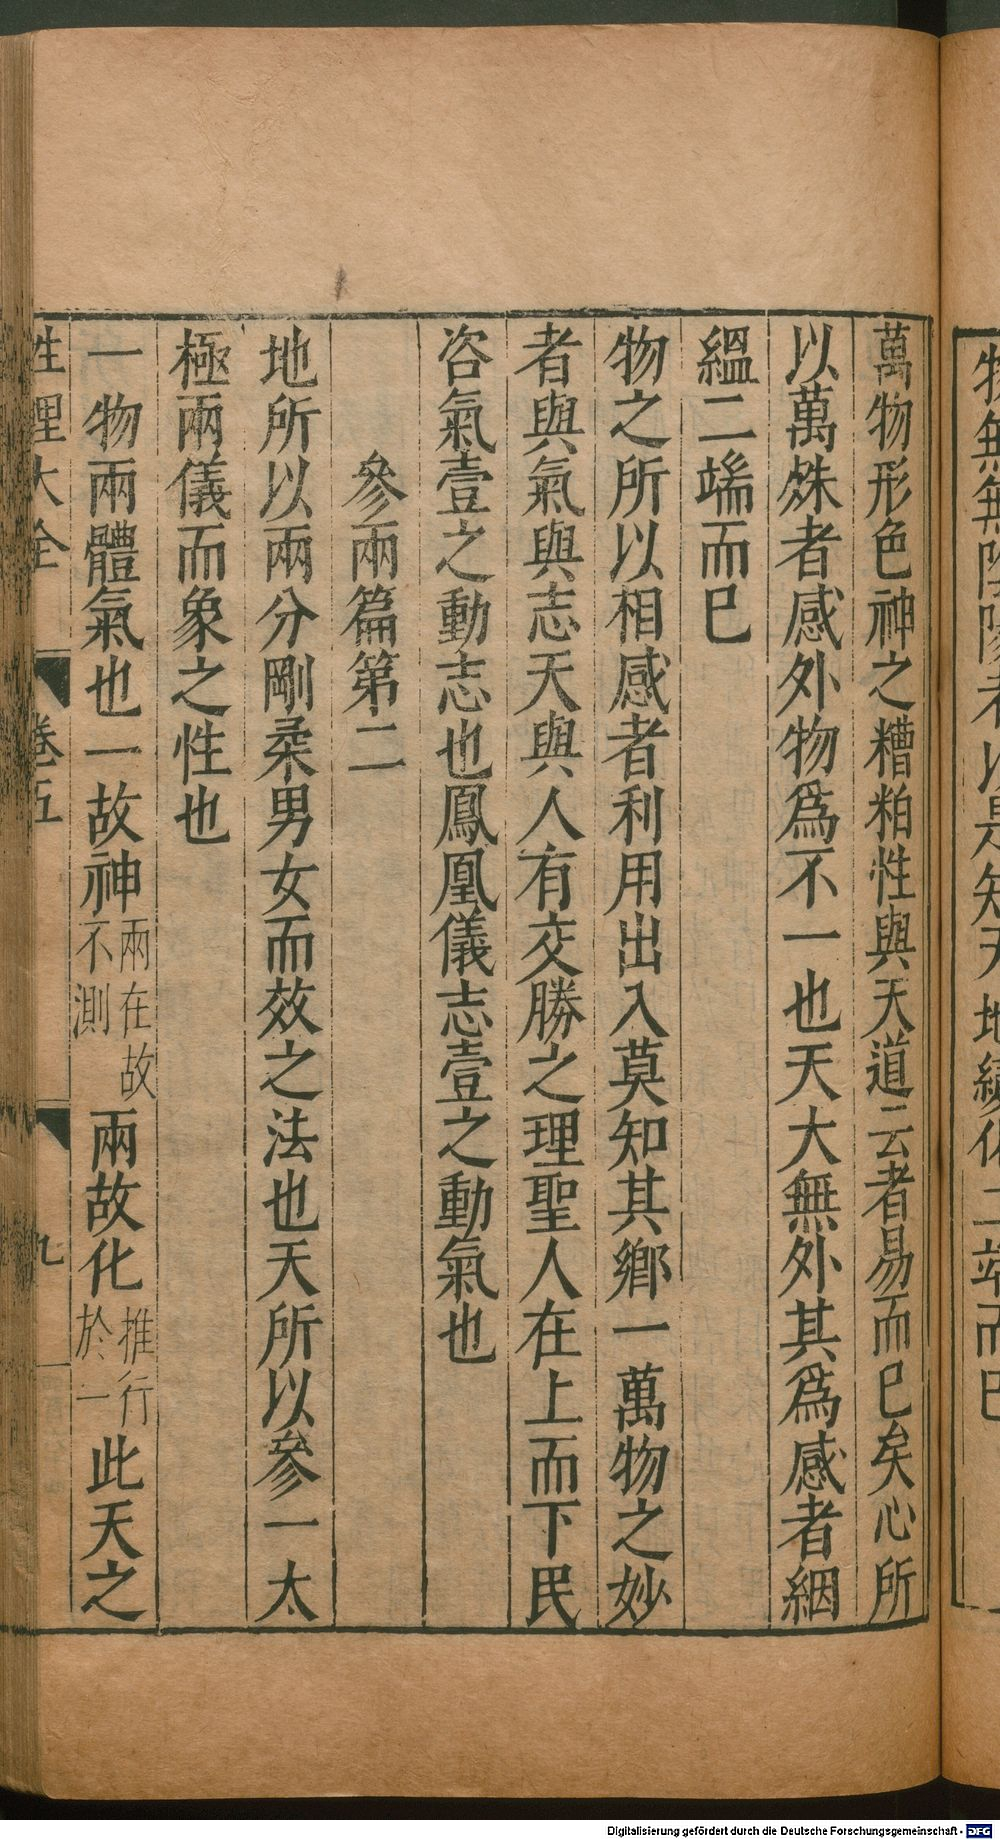 物無無陰陽者以是知天地變化二端而已
萬物形色神之糟粕性與天道云者易而已矣心所
以萬殊者感外物爲不一也天大無外其爲感者絪
縕二端而已
物之所以相感者利用出入莫知其鄉一萬物之妙
者與氣與志天與人有交勝之理聖人在上而下民
咨氣壹之動志也鳳凰儀志壹之動氣也
參兩篇第二
地所以兩分剛柔男女而效之法也天所以參一太
極兩儀而象之性也
一物兩體氣也一故神兩在故不測兩故化推行於一此天之
性理大全 卷五 九
Digitalisierung gefördert durch die Deutsche Forschungsgemeinschaft - DFG